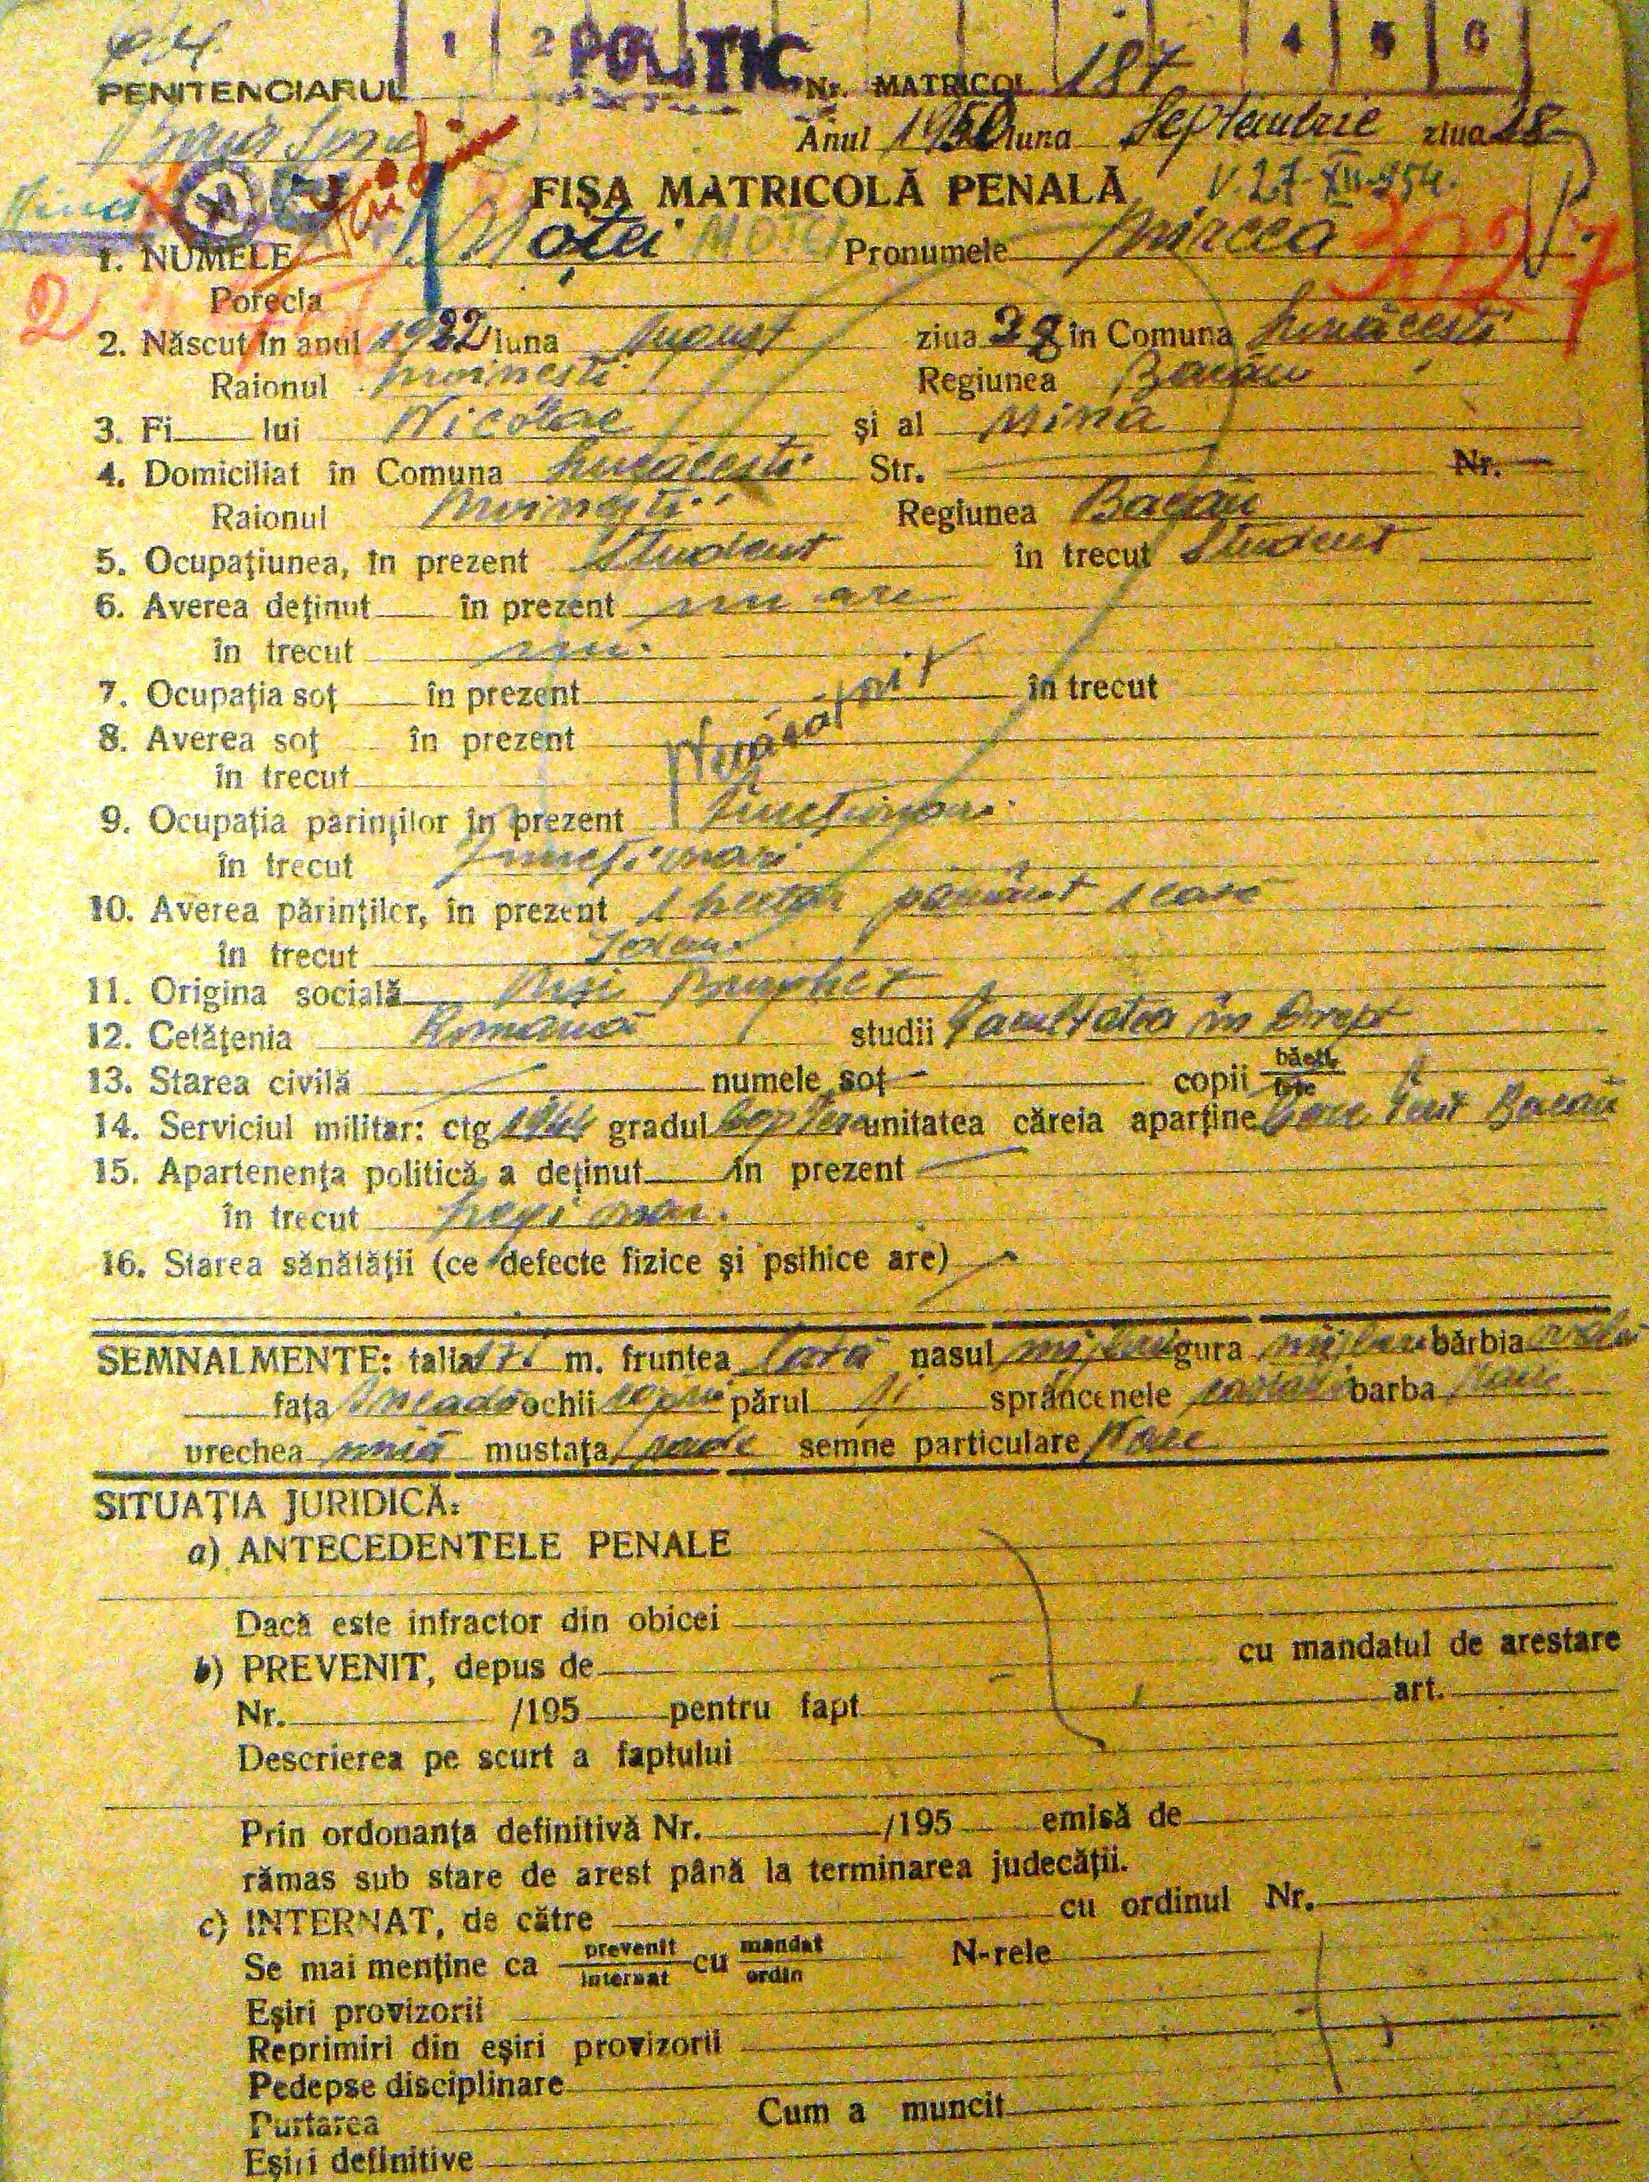 1 2 POLITIC 4 5 6
PENITENCIARUL Nr. MATRICOL 187
Anul 1950 luna Septembrie ziua 18
XI
FIȘA MATRICOLĂ PENALĂ V. 27-XII-954.
1. NUMELE Moței MOȚEI Pronumele Mircea
Porecla
2. Născut în anul 1922 luna August ziua 28 în Comuna Lucăcești
Raionul Moinești Regiunea Bacău
3. Fi lui Nicolae și al Mina
4. Domiciliat în Comuna Lucăcești Str. Nr.
Raionul Moinești Regiunea Bacău
5. Ocupațiunea, în prezent Student în trecut Student
6. Averea deținut în prezent nu are
în trecut nu.
7. Ocupația soț în prezent în trecut
8. Averea soț în prezent Necăsătorit
în trecut
9. Ocupația părinților în prezent funcționari
în trecut funcționari
10. Averea părinților, în prezent 1 hectar pămînt 1 casă
în trecut Idem
11. Origina socială Mic Burghez
12. Cetățenia Română studii Facultatea în Drept
13. Starea civilă numele soț copii băeți fete
14. Serviciul militar: ctg 1944 gradul unitatea căreia aparține Bacău
15. Apartenența politică, a deținut în prezent
în trecut Legionar.
16. Starea sănătății (ce defecte fizice și psihice are)
SEMNALMENTE: talia 171 m. fruntea lată nasul mijlociu gura mijlocie bărbia ovală
fața ochii căprui părul sprâncenele barba rade
urechea mică mustața rade semne particulare Nare
SITUAȚIA JURIDICĂ:
a) ANTECEDENTELE PENALE
Dacă este infractor din obicei
b) PREVENIT, depus de cu mandatul de arestare
Nr. /195 pentru fapt art.
Descrierea pe scurt a faptului
Prin ordonanța definitivă Nr. /195 emisă de
rămas sub stare de arest până la terminarea judecății.
c) INTERNAT, de către cu ordinul Nr.
Se mai menține ca prevenit internat cu mandat ordin N-rele
Eșiri provizorii
Reprimiri din eșiri provizorii
Pedepse disciplinare
Purtarea Cum a muncit
Eșiri definitive